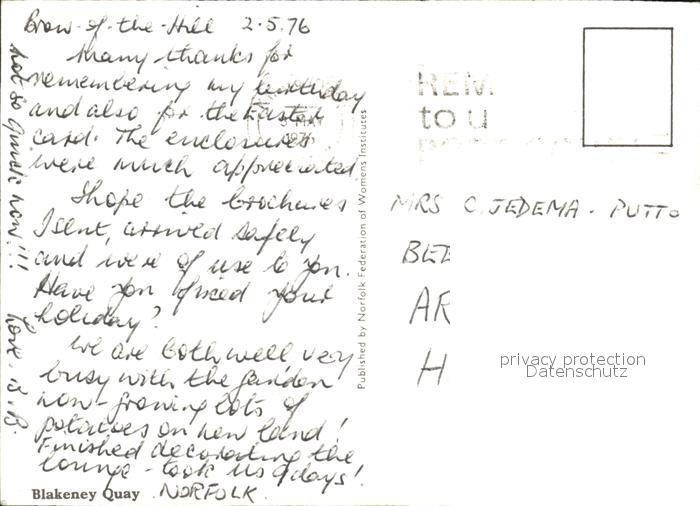 Brow-of-the-Hill 2.5.76
Many thanks for
remembering my birthday
and also for the Easter
card. The enclosures
were much appreciated.
I hope the brochures
I sent, arrived safely
and were of use to you.
Have you fixed your
holiday?
We are both well very
busy with the garden
now - growing lots of
potatoes on new land!
Finished decorating the
lounge - took us 9 days!
not so quick now!!!
Love B.
Blakeney Quay NORFOLK.
Published by Norfolk Federation of Womens Institutes
MAY
1976
REM
to u
MRS C. JEDEMA - PUTTO
BEE
AR
H
privacy protection
Datenschutz